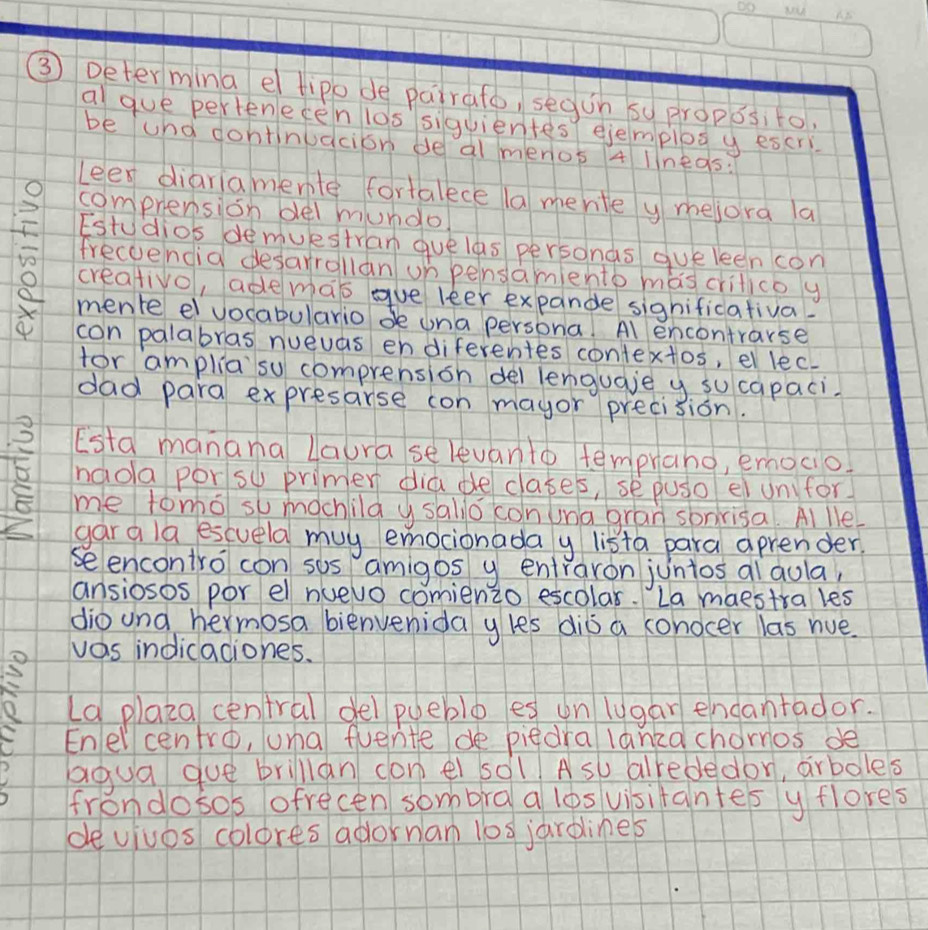 DO
③ Determina el tipo de párrafo, según su propósito,
al que pertenecen los siguientes ejemplos y escri-
be una continuación de al menos 4 líneas:
expositivo
Leer diariamente fortalece la mente y mejora la
comprensión del mundo.
Estudios demuestran que las personas que leen con
frecuencia desarrollan un pensamiento más crítico y
creativo, además que leer expande significativa-
mente el vocabulario de una persona. Al encontrarse
con palabras nuevas en diferentes contextos, el lec-
tor amplía su comprensión del lenguaje y su capaci-
dad para expresarse con mayor precisión.
Narrativo
Esta mañana Laura se levantó temprano, emocio-
nada por su primer dia de clases, se puso el unifor-
me tomó su mochila y salió con una gran sonrisa. Al lle-
gar a la escuela muy emocionada y lista para aprender.
se encontró con sus amigos y entraron juntos al aula,
ansiosos por el nuevo comienzo escolar. La maestra les
dio una hermosa bienvenida y les dió a conocer las nue-
vas indicaciones.
La plaza central del pueblo es un lugar encantador.
En el centro, una fuente de piedra lanza chorros de
agua que brillan con el sol. A su alrededor, árboles
frondosos ofrecen sombra a los visitantes y flores
de vivos colores adornan los jardines